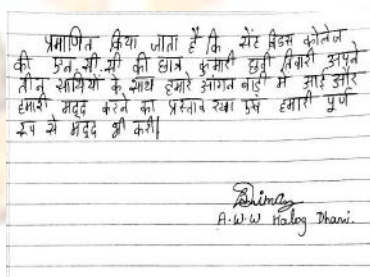 प्रमाणित किया जाता है कि सेंट बिडस कॉलेज
की एन.सी.सी की छात्र कुमारी छवी तिवारी अपने
तीन साथियों के साथ हमारे आंगन वाड़ी में आई और
हमारी मदद करने का प्रस्ताव रखा एवं हमारी पूर्ण
रूप से मदद भी करी|
A.W.W Halog Dhami.